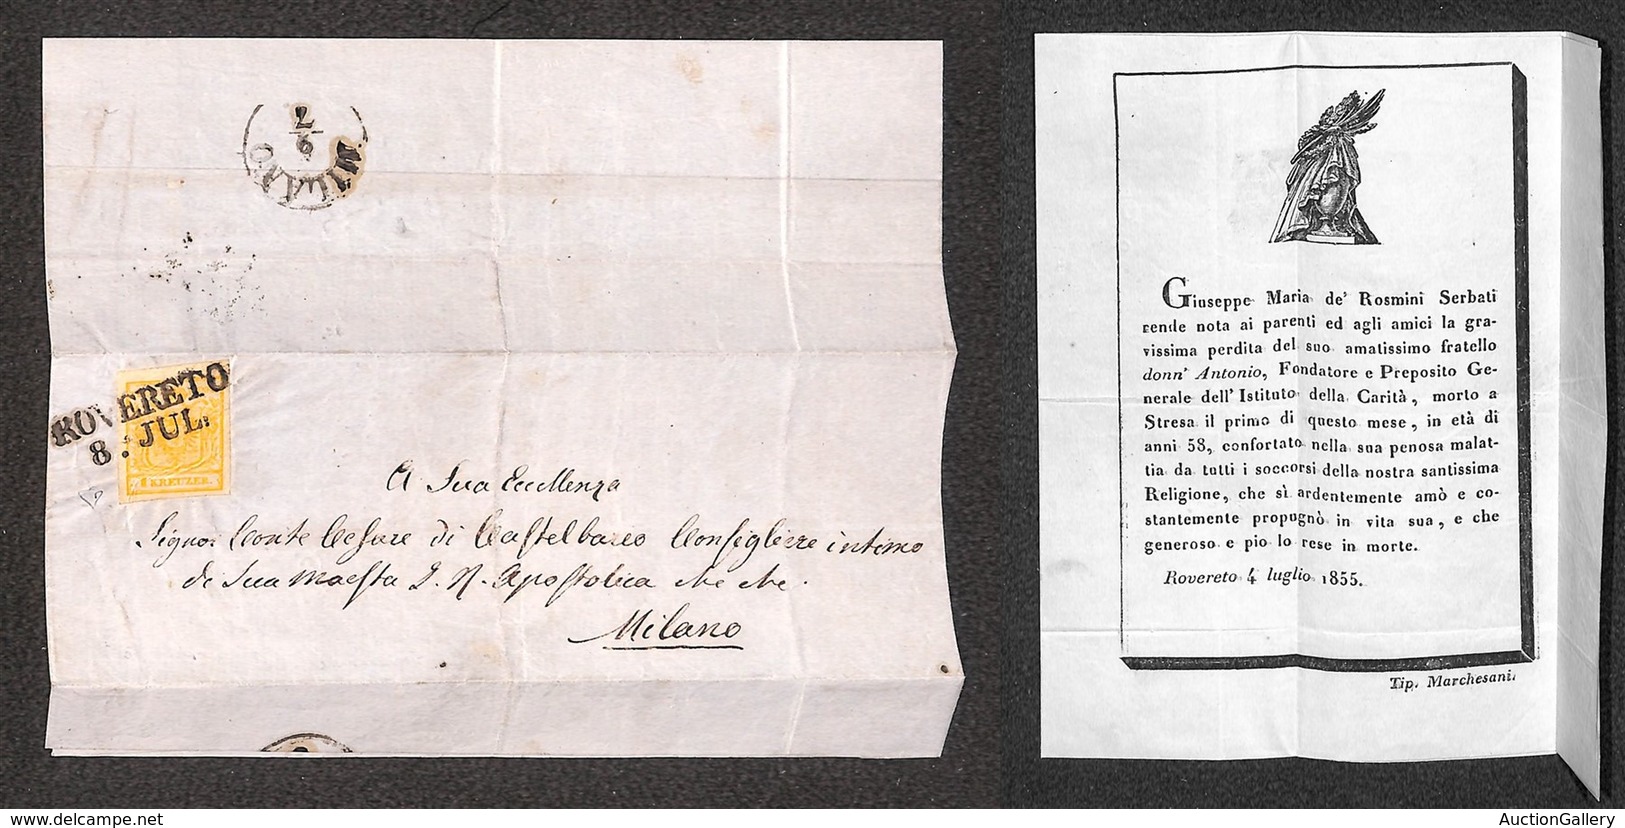 MILANO
9/7
ROVERETO
8: JUL:
1 KREUZER
A Sua Eccellenza
Signor Conte Cesare di Castelbarco Consigliere intimo
di Sua Maesta I. R. Apostolica che che.
Milano
Giuseppe Maria de' Rosmini Serbati
rende nota ai parenti ed agli amici la gra-
vissima perdita del suo amatissimo fratello
donn' Antonio, Fondatore e Preposito Ge-
nerale dell' Istituto della Carità, morto a
Stresa il primo di questo mese, in età di
anni 58, confortato nella sua penosa malat-
tia da tutti i soccorsi della nostra santissima
Religione, che sì ardentemente amò e co-
stantemente propugnò in vita sua, e che
generoso e pio lo rese in morte.
Rovereto 4 luglio 1855.
Tip. Marchesani.
delcampe.net
AuctionGallery